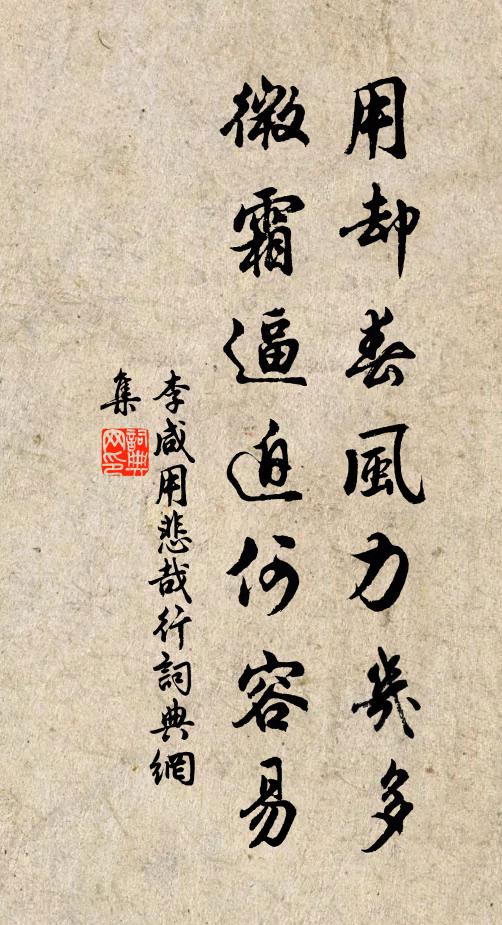 用却春風力幾多
微霜逼迫何容易
李咸用悲哉行詞典網
集
詞典网印